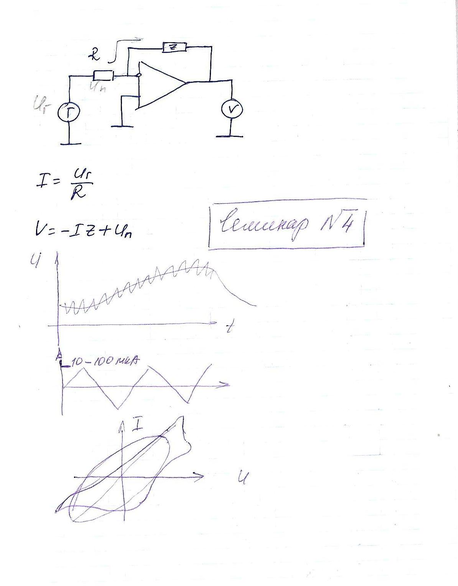 R
Z
Uп
Uг
Г
V
I = Uг/R
V = -IZ + Uп
Семинар №4
U
t
10-100 мкА
I
U